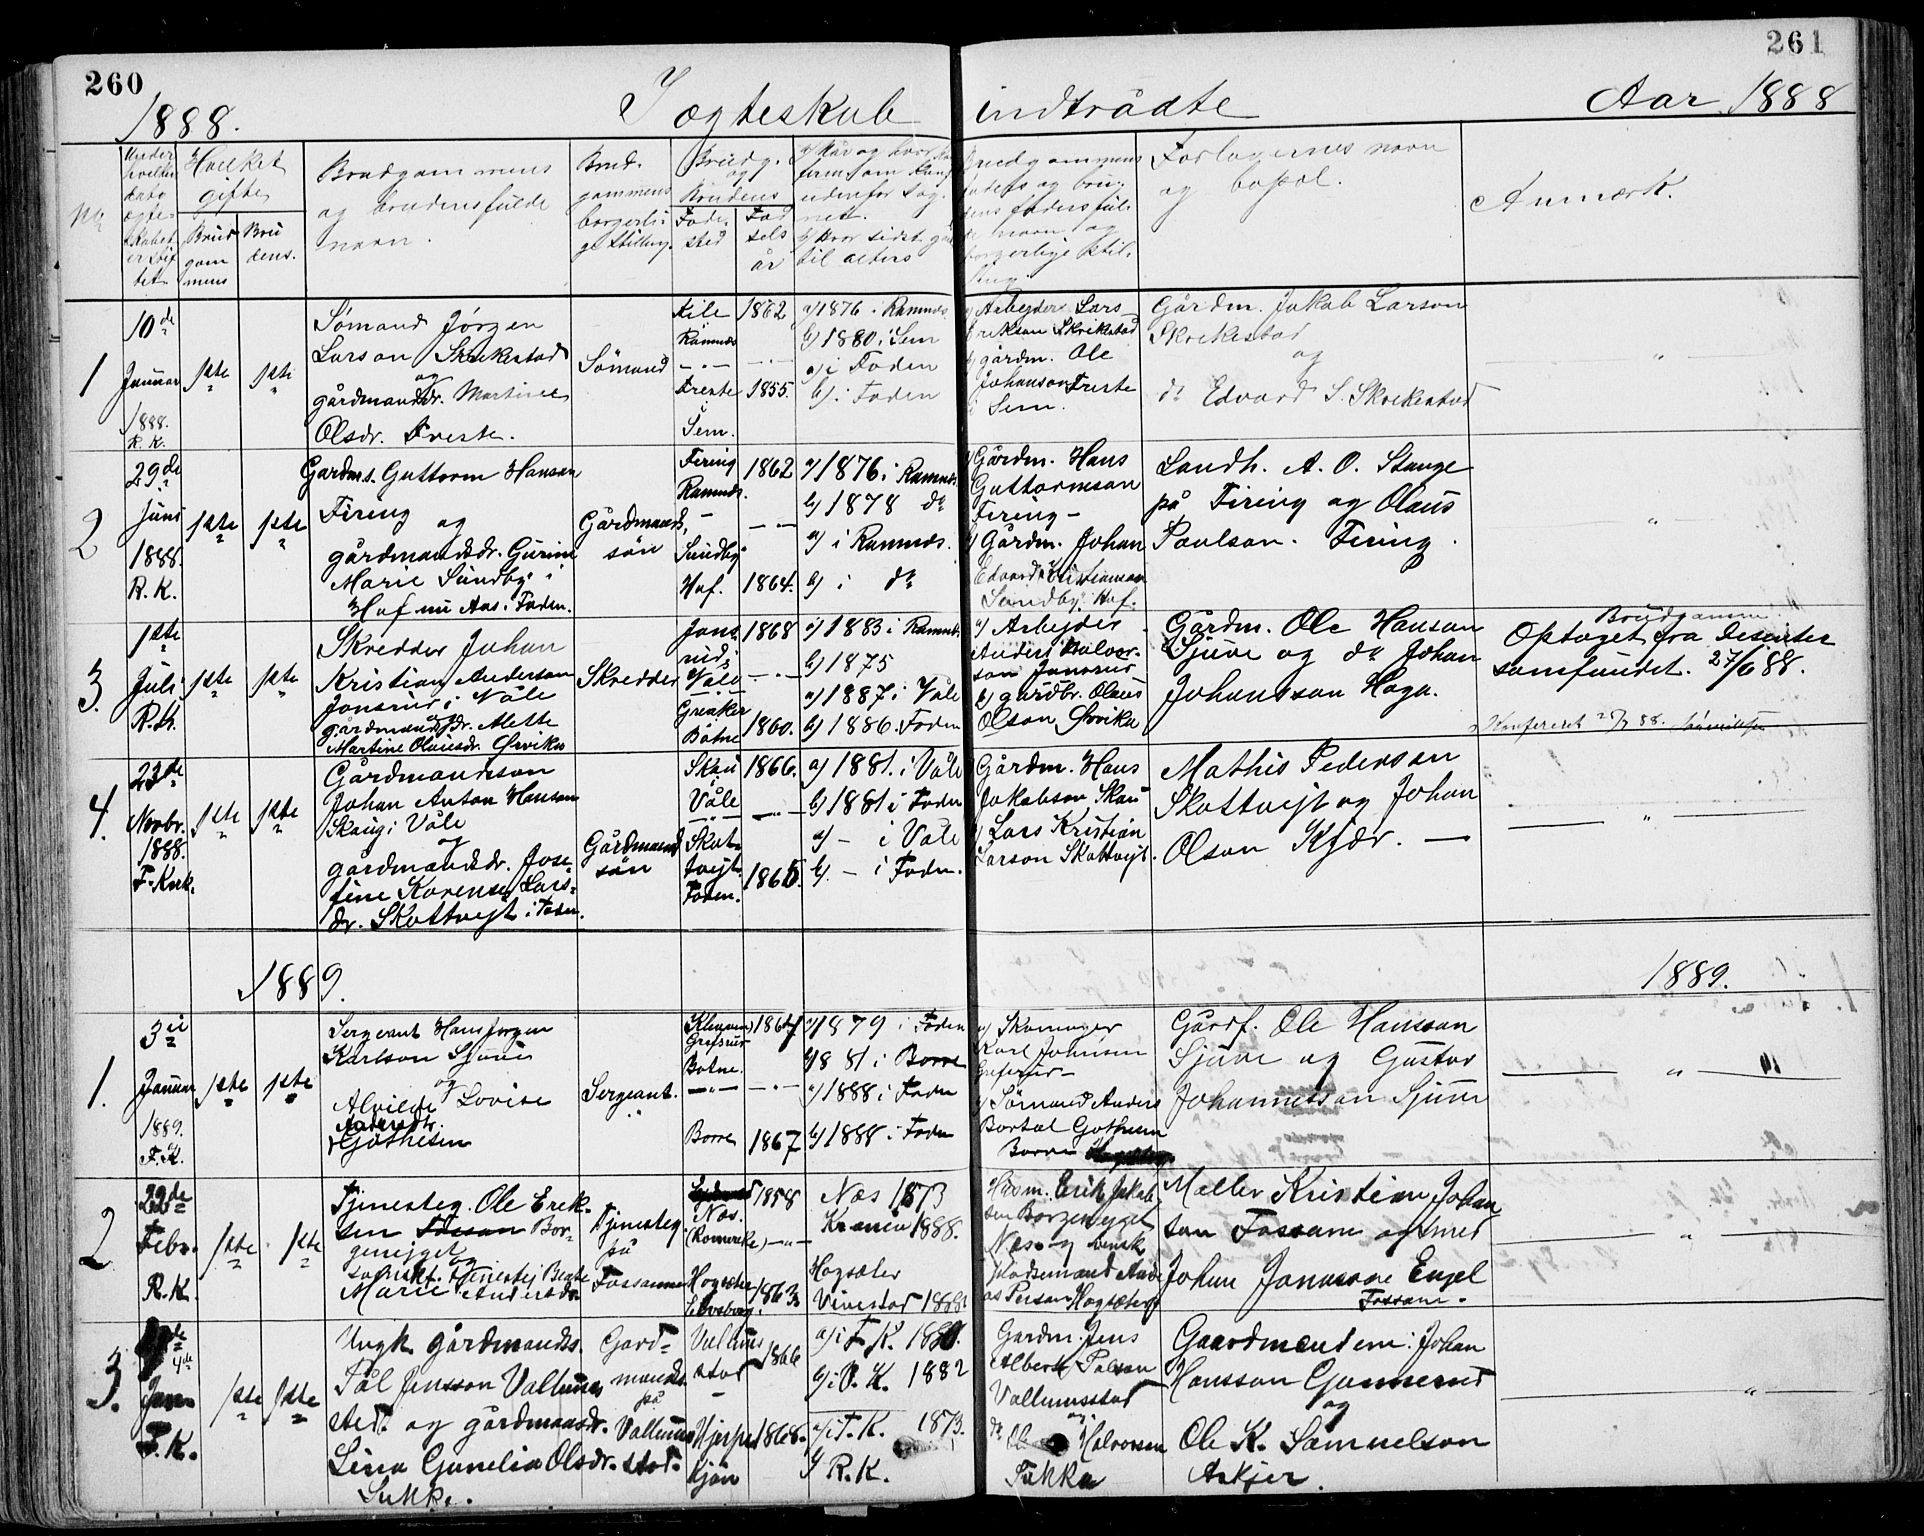 260
261
1888.
I ægteskab indtrådte
Aar 1888
No
Under hvilken dato ægteskabet er stiftet
Hvilket gifte
Brudgommens
Brudens.
Brudgommens og brudens fulde navn.
Brudgommens borgerlige stilling.
Brudg. og Brudens
Fødested
Fødselsår
b) hvor sidst gået til alters
Forlovernes navn og bopæl.
Anmærk.
1
10de Januar 1888. R. K.
1ste
1ste
Sömand Jörgen
Larson Skrekestad
og
gårdmandsdr. Martine
Olsdr. Freste.
Sömand
Kile
Ramnes
Freste
i
Sem.
1862
1855.
a) 1876 i Ramnes
b) 1880 i Sem
a) i Foden
b) i Foden
a) Arbejder Lars
Erikson Skrikestad
b) gårdm. Ole
Johanson Freste
i Sem.
Gårdm. Jakob Larson
Skrekestad
og
do Edvard S. Skrekestad
2
29de juni 1888. R. K.
1ste
1ste
Gardms. Guttorm Hanson
Firing
og
gårdmandsdr. Gurine
Marie Sundby i
Hof nu Aas i Foden.
Gårdmands
sön
Firing
Ramnes.
Sundby
Hof.
1862
1864.
a) 1876 i Ramnes
b) 1878 do
a) i Ramnes.
b) i do
a) Gårdm. Hans
Guttormson
Firing
b) Gårdm. Johan
Edvard Kristianson
Sundby i Hof.
Landh. A. O. Stange
på Firing og Olaus
Paulson. Firing.
3.
1ste Juli R.K.
1ste
1ste
Skredder Johan
Kristian Anderson
Jonsrud i Våle
gårdmandsdr. Mette
Martine Olausdr. Örvika
Skredder
Jonsrud i
Våle
Greaker
Botne
1868
1860.
a) 1883 i Ramnes.
b) 1875
a) 1887 i Våle
b) 1886 Foden
a) Arbejder
Anders Halvorson Jonsrud
b) gardbr. Olaus
Olson Örvika
Gårdm. Ole Hanson
Sjuve og do Johan
Johannson Haga.
Brudgommen
Optaget fra Desenter
samfundet. 27/6 88.
4.
23de Novbr. 1888. F. Kirk.
1ste
1ste
Gårdmandsson
Johan Anton Hanson
Skaug i Våle
og
gårdmandsdr. Josefine Karense Larsdr. Skottvejt i Foden.
Gårdmand
sön
Skau
Våle
Skottvejt
Foden.
1866.
1865.
a) 1881. i Våle
b) 1881 i Foden
a) - i Våle
b) - i Foden.
Gårdm. Hans
Jakobson Skau
Lars Kristian
Larson Skottvejt.
Mathis Pederson
Skottvejt og Johan
Olson Kjær.
1889.
1889.
1.
3die Januar 1889. F. K.
1ste
1ste
Sergeant Hans Jörgen
Karlson Sjuve
og
Alvilde Lovise
Andersdtr.
Gothesen
Sergeant.
Botne.
Borre
1864
1867
a) 1879 i Foden
b) 1881 i Borre
a) 1888 i Foden
b) 1888 i Foden
a) Skomager
Karl Johnsen
b) Sömand Anders
Bortal Gothesen
Borre
Gårdf. Ole Hansson
Sjuve og Gustav
Johannesson Sjuve
2
22de Febr. R. K.
1ste
1ste
Tjenesteg. Ole Eriksen Borgenejget
og
Tjenestej Beate
Marie Andersdr.
Tjenesteg.
på
Fossanne
Næs.
(Romerike)
Hogsæter
1858
1863
Næs 1873
1888.
Hogsæter
Vivestad 1888
Husm. Erik Jakobsen Borgenejget
Næs og
Anders Person Hogsæter
Møller Kristian Johanson Fossane og smed
Johan Jonassone Engel
Fossane.
3.
4de Jan. F. K.
1ste
1ste
Ungk. gårdmands.
Pål Jensson Vallumsted. og gårdmansdr.
Lina Gunelia Olsdr.
Sukke.
Gardmands.
på
Vallumstad.
Vallumstad
Hjerpekjön
1866
1868.
a) i F. K. 1880.
b) i R. K. 1882
a) i F. K. 1873.
b) R. K.
Gardm. Jens
Albert Palsen
Vallumsstad
og
do Ole Halvorsen
Gaardmendene: Johan
Hansson Gunnerød
og
Ole K. Samuelson
Askjer.